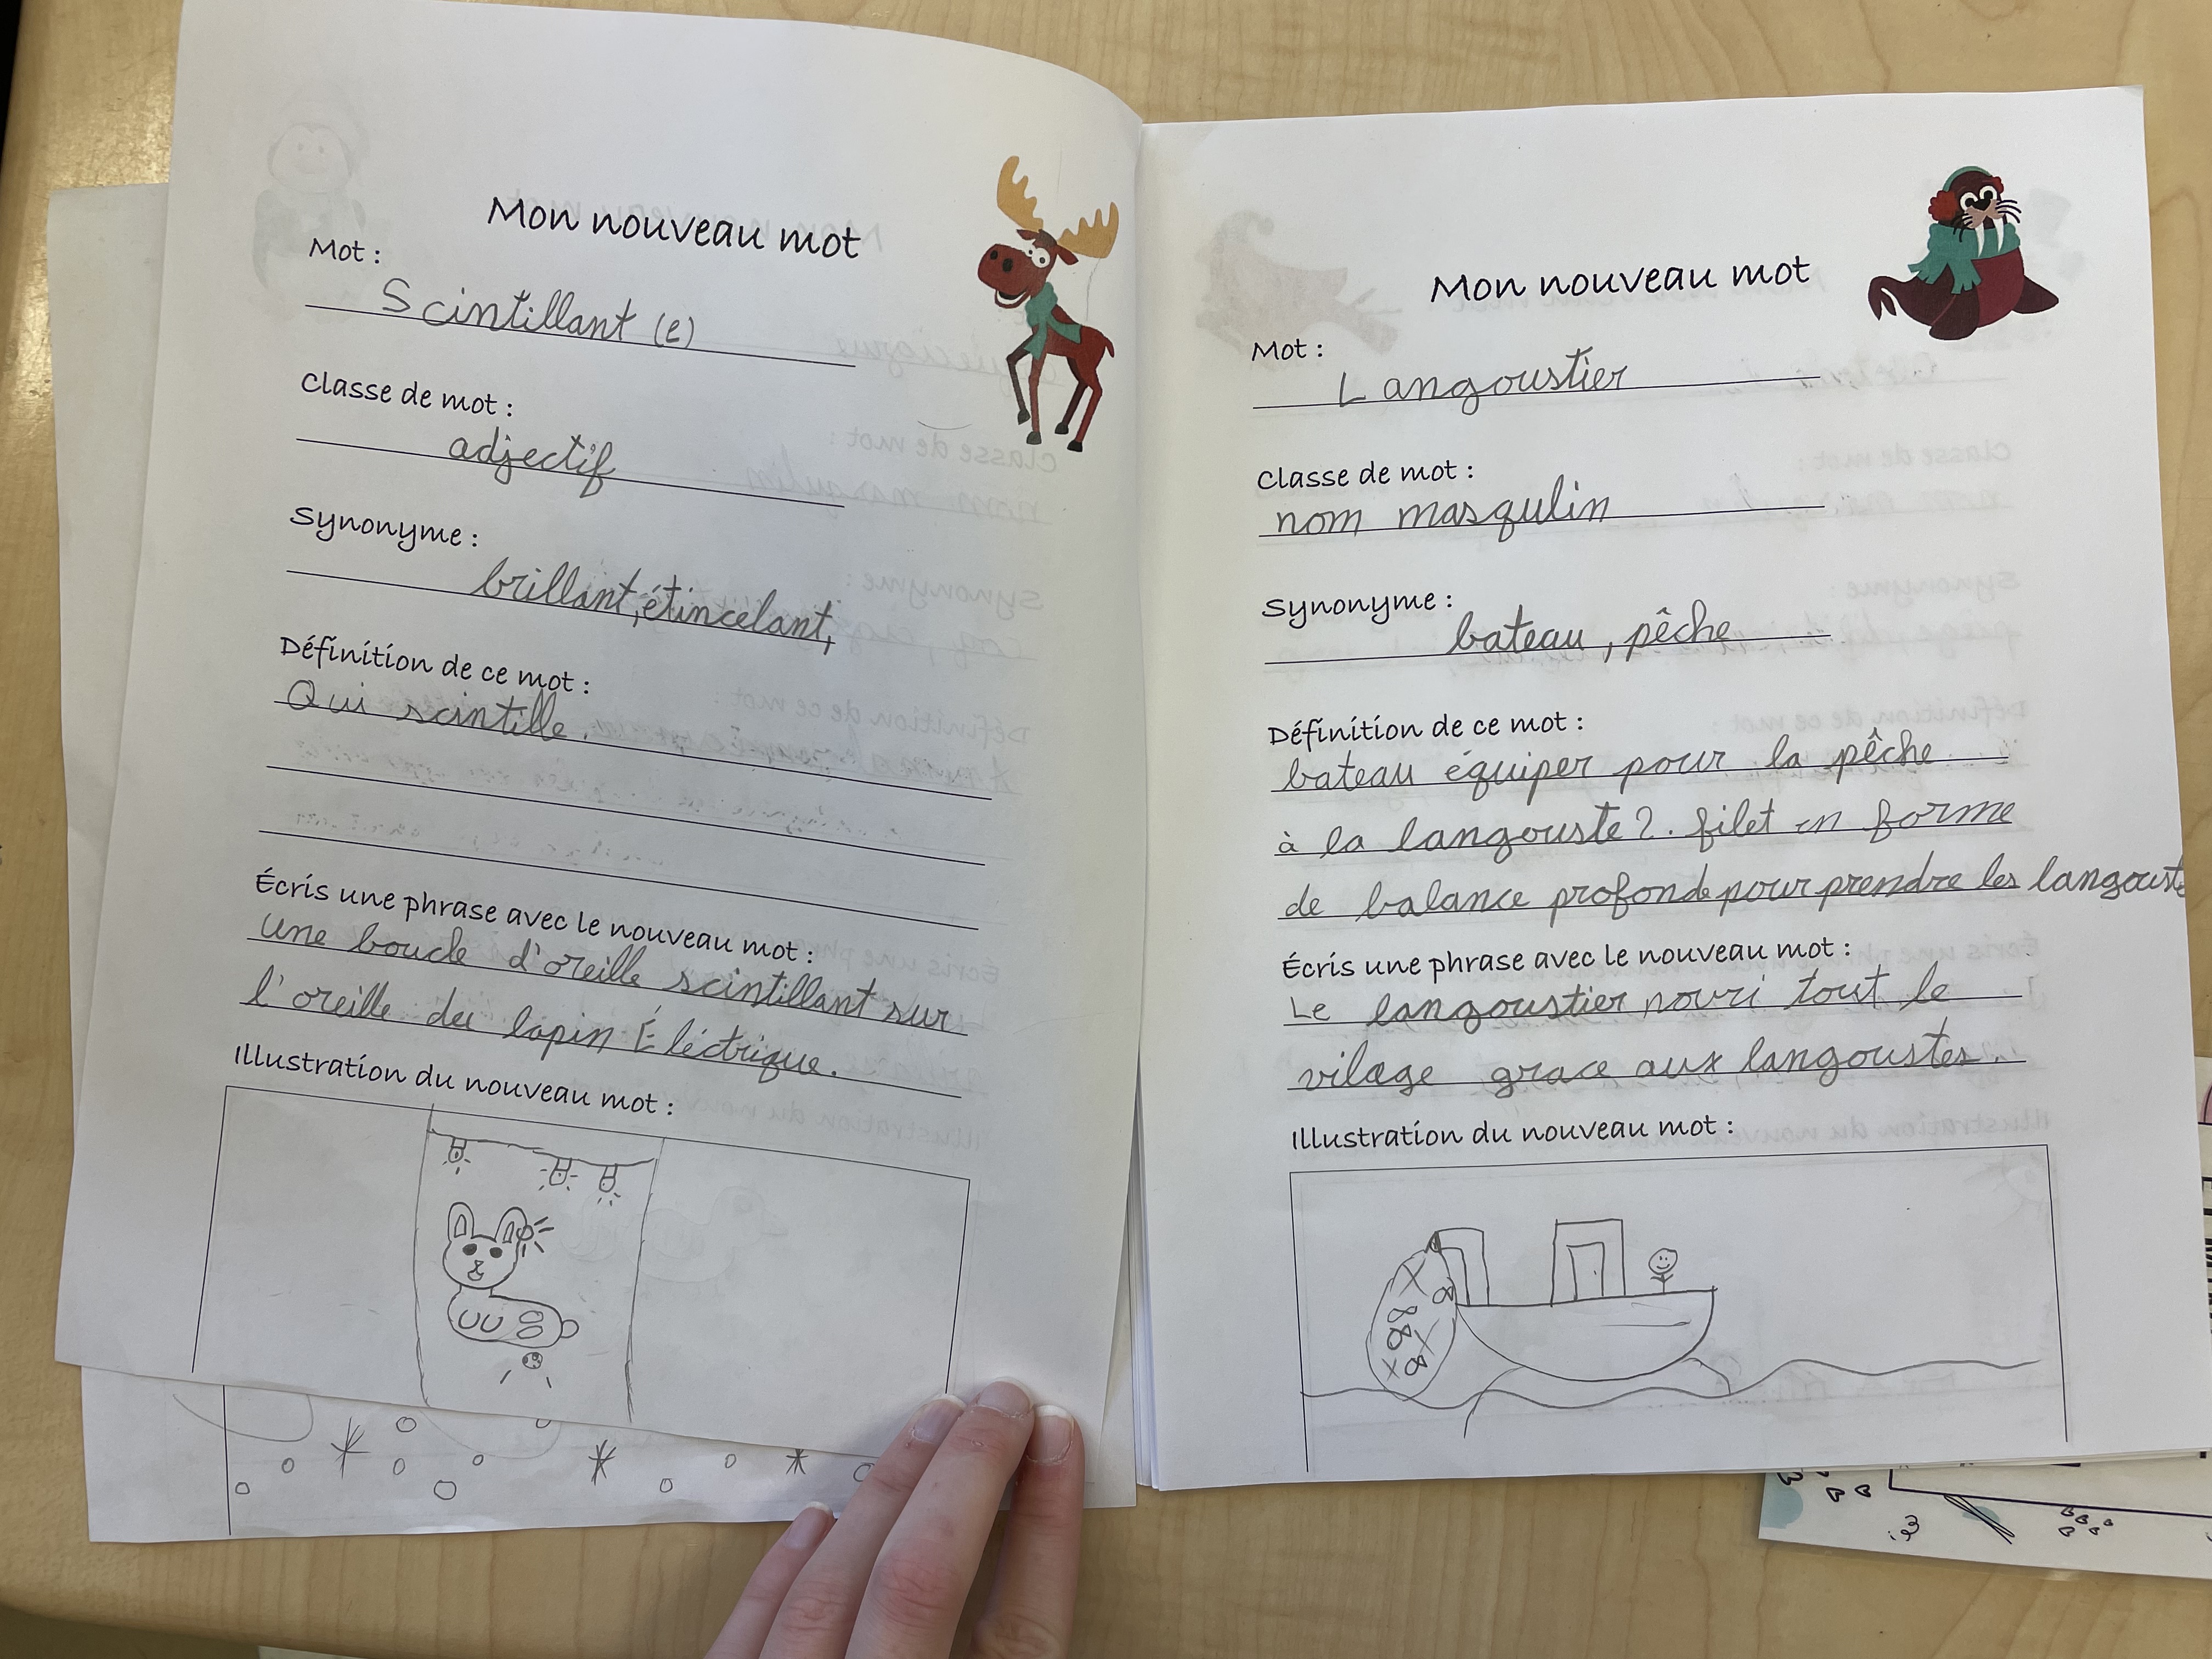 Mon nouveau mot
Mot :
Scintillant (e)
Classe de mot :
adjectif
Synonyme :
brillant, étincelant,
Définition de ce mot :
Qui scintille.
Écris une phrase avec le nouveau mot :
une boucle d'oreille scintillant sur
l'oreille du lapin Éléctrique.
Illustration du nouveau mot :
Mon nouveau mot
Mot :
Langoustier
Classe de mot :
nom masqulin
Synonyme :
bateau, pêche
Définition de ce mot :
bateau équiper pour la pêche
à la langouste 2. filet en forme
de balance profonde pour prendre les langouste
Écris une phrase avec le nouveau mot :
Le langoustier nouri tout le
vilage grace aux langoustes.
Illustration du nouveau mot :